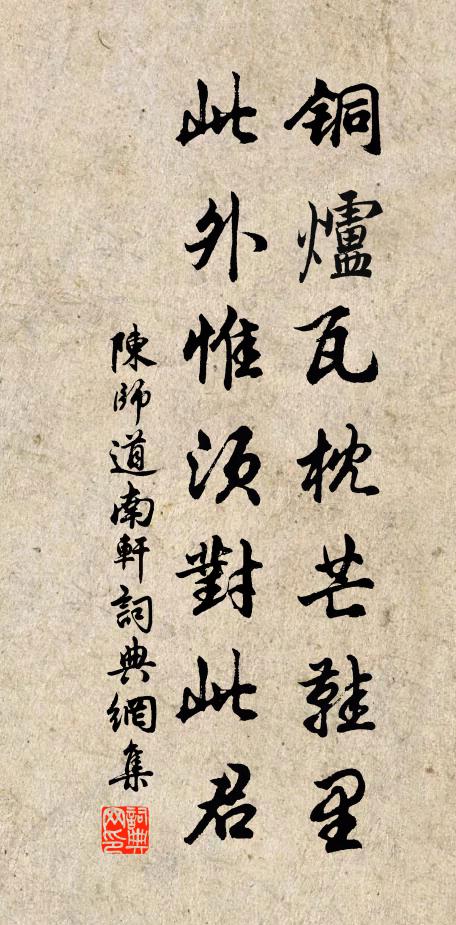 銅爐瓦枕芒鞋里
此外惟須對此君
陳師道南軒詞典網集
詞典网印